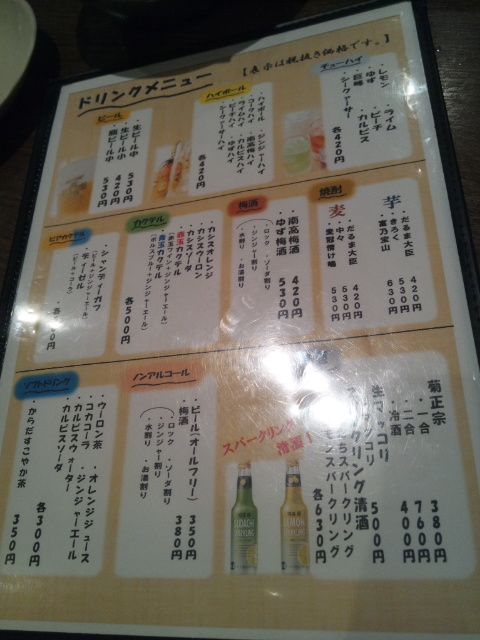 ドリンクメニュー
【表示は税抜き価格です。】
ビール
・生ビール中 530円
・生ビール小 420円
・瓶ビール中 530円
ハイボール
・ハイボール
・ジンジャーハイ
・コークハイ
・南高梅ハイ
・ライムハイ
・カルピスハイ
・ピーチハイ
・ゆずハイ
・シークァーサーハイ
各420円
チューハイ
・レモン
・ライム
・ゆず
・ピーチ
・巨峰
・カルピス
・シークァーサー
各420円
ビアカクテル
・シャンディーガフ
(ビール+ジンジャーエール)
・ディーゼル
(ビール+コーラ)
カクテル
・カシスオレンジ
・カシスウーロン
・カシスソーダ
・赤玉カクテル
(赤玉ワイン+ジンジャーエール)
・青玉カクテル
(ボルスブルー+ジンジャーエール)
各500円
梅酒
・南高梅酒 420円
・ゆず梅酒 530円
(ロック ・ソーダ割り
・ジンジャー割り
・水割り ・お湯割り)
焼酎
芋
・だるま大臣 420円
・きろく 530円
・富乃宝山 630円
麦
・だるま大臣 420円
・中々 530円
・壹岐情け嶋 530円
ソフトドリンク
・ウーロン茶
・オレンジジュース
・コカコーラ
・ジンジャーエール
・カルピスウォーター
・カルピスソーダ
各300円
・からだすこやか茶 350円
ノンアルコール
・ビール(オールフリー) 350円
・梅酒 380円
(・ロック ・ソーダ割り
・ジンジャー割り
・水割り ・お湯割り)
菊正宗
・一合 380円
・二合 760円
・冷酒 400円
生マッコリ
500円
スパークリング清酒
各630円
スパークリング
清酒!
SUDACHI
SPARKLING
LEMON
SPARKLING